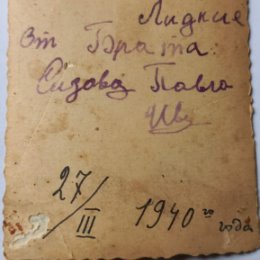 Лидкие
От Брата
Сизова Павла
Ив
27/III 1940 го года